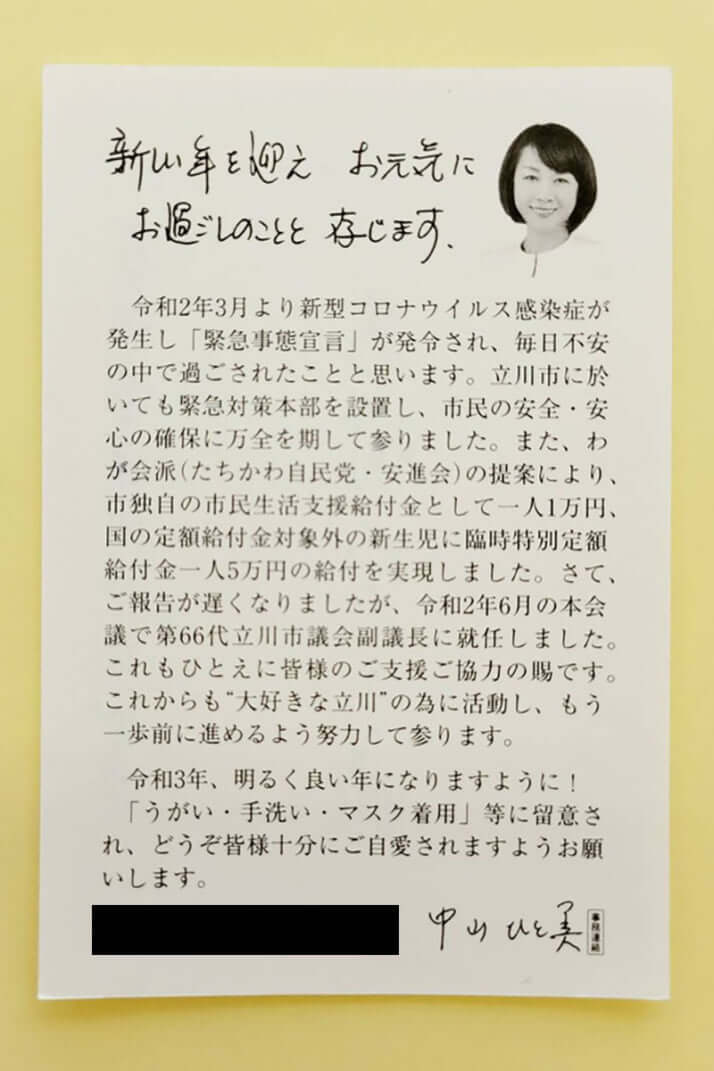 新しい年を迎え お元気に
お過ごしのことと 存じます、
令和2年3月より新型コロナウイルス感染症が
発生し「緊急事態宣言」が発令され、毎日不安
の中で過ごされたことと思います。立川市に於
いても緊急対策本部を設置し、市民の安全・安
心の確保に万全を期して参りました。また、わ
が会派(たちかわ自民党・安進会)の提案により、
市独自の市民生活支援給付金として一人1万円、
国の定額給付金対象外の新生児に臨時特別定額
給付金一人5万円の給付を実現しました。さて、
ご報告が遅くなりましたが、令和2年6月の本会
議で第66代立川市議会副議長に就任しました。
これもひとえに皆様のご支援ご協力の賜です。
これからも“大好きな立川”の為に活動し、もう
一歩前に進めるよう努力して参ります。
令和3年、明るく良い年になりますように！
「うがい・手洗い・マスク着用」等に留意さ
れ、どうぞ皆様十分にご自愛されますようお願
いします。
中山ひと美
事務連絡